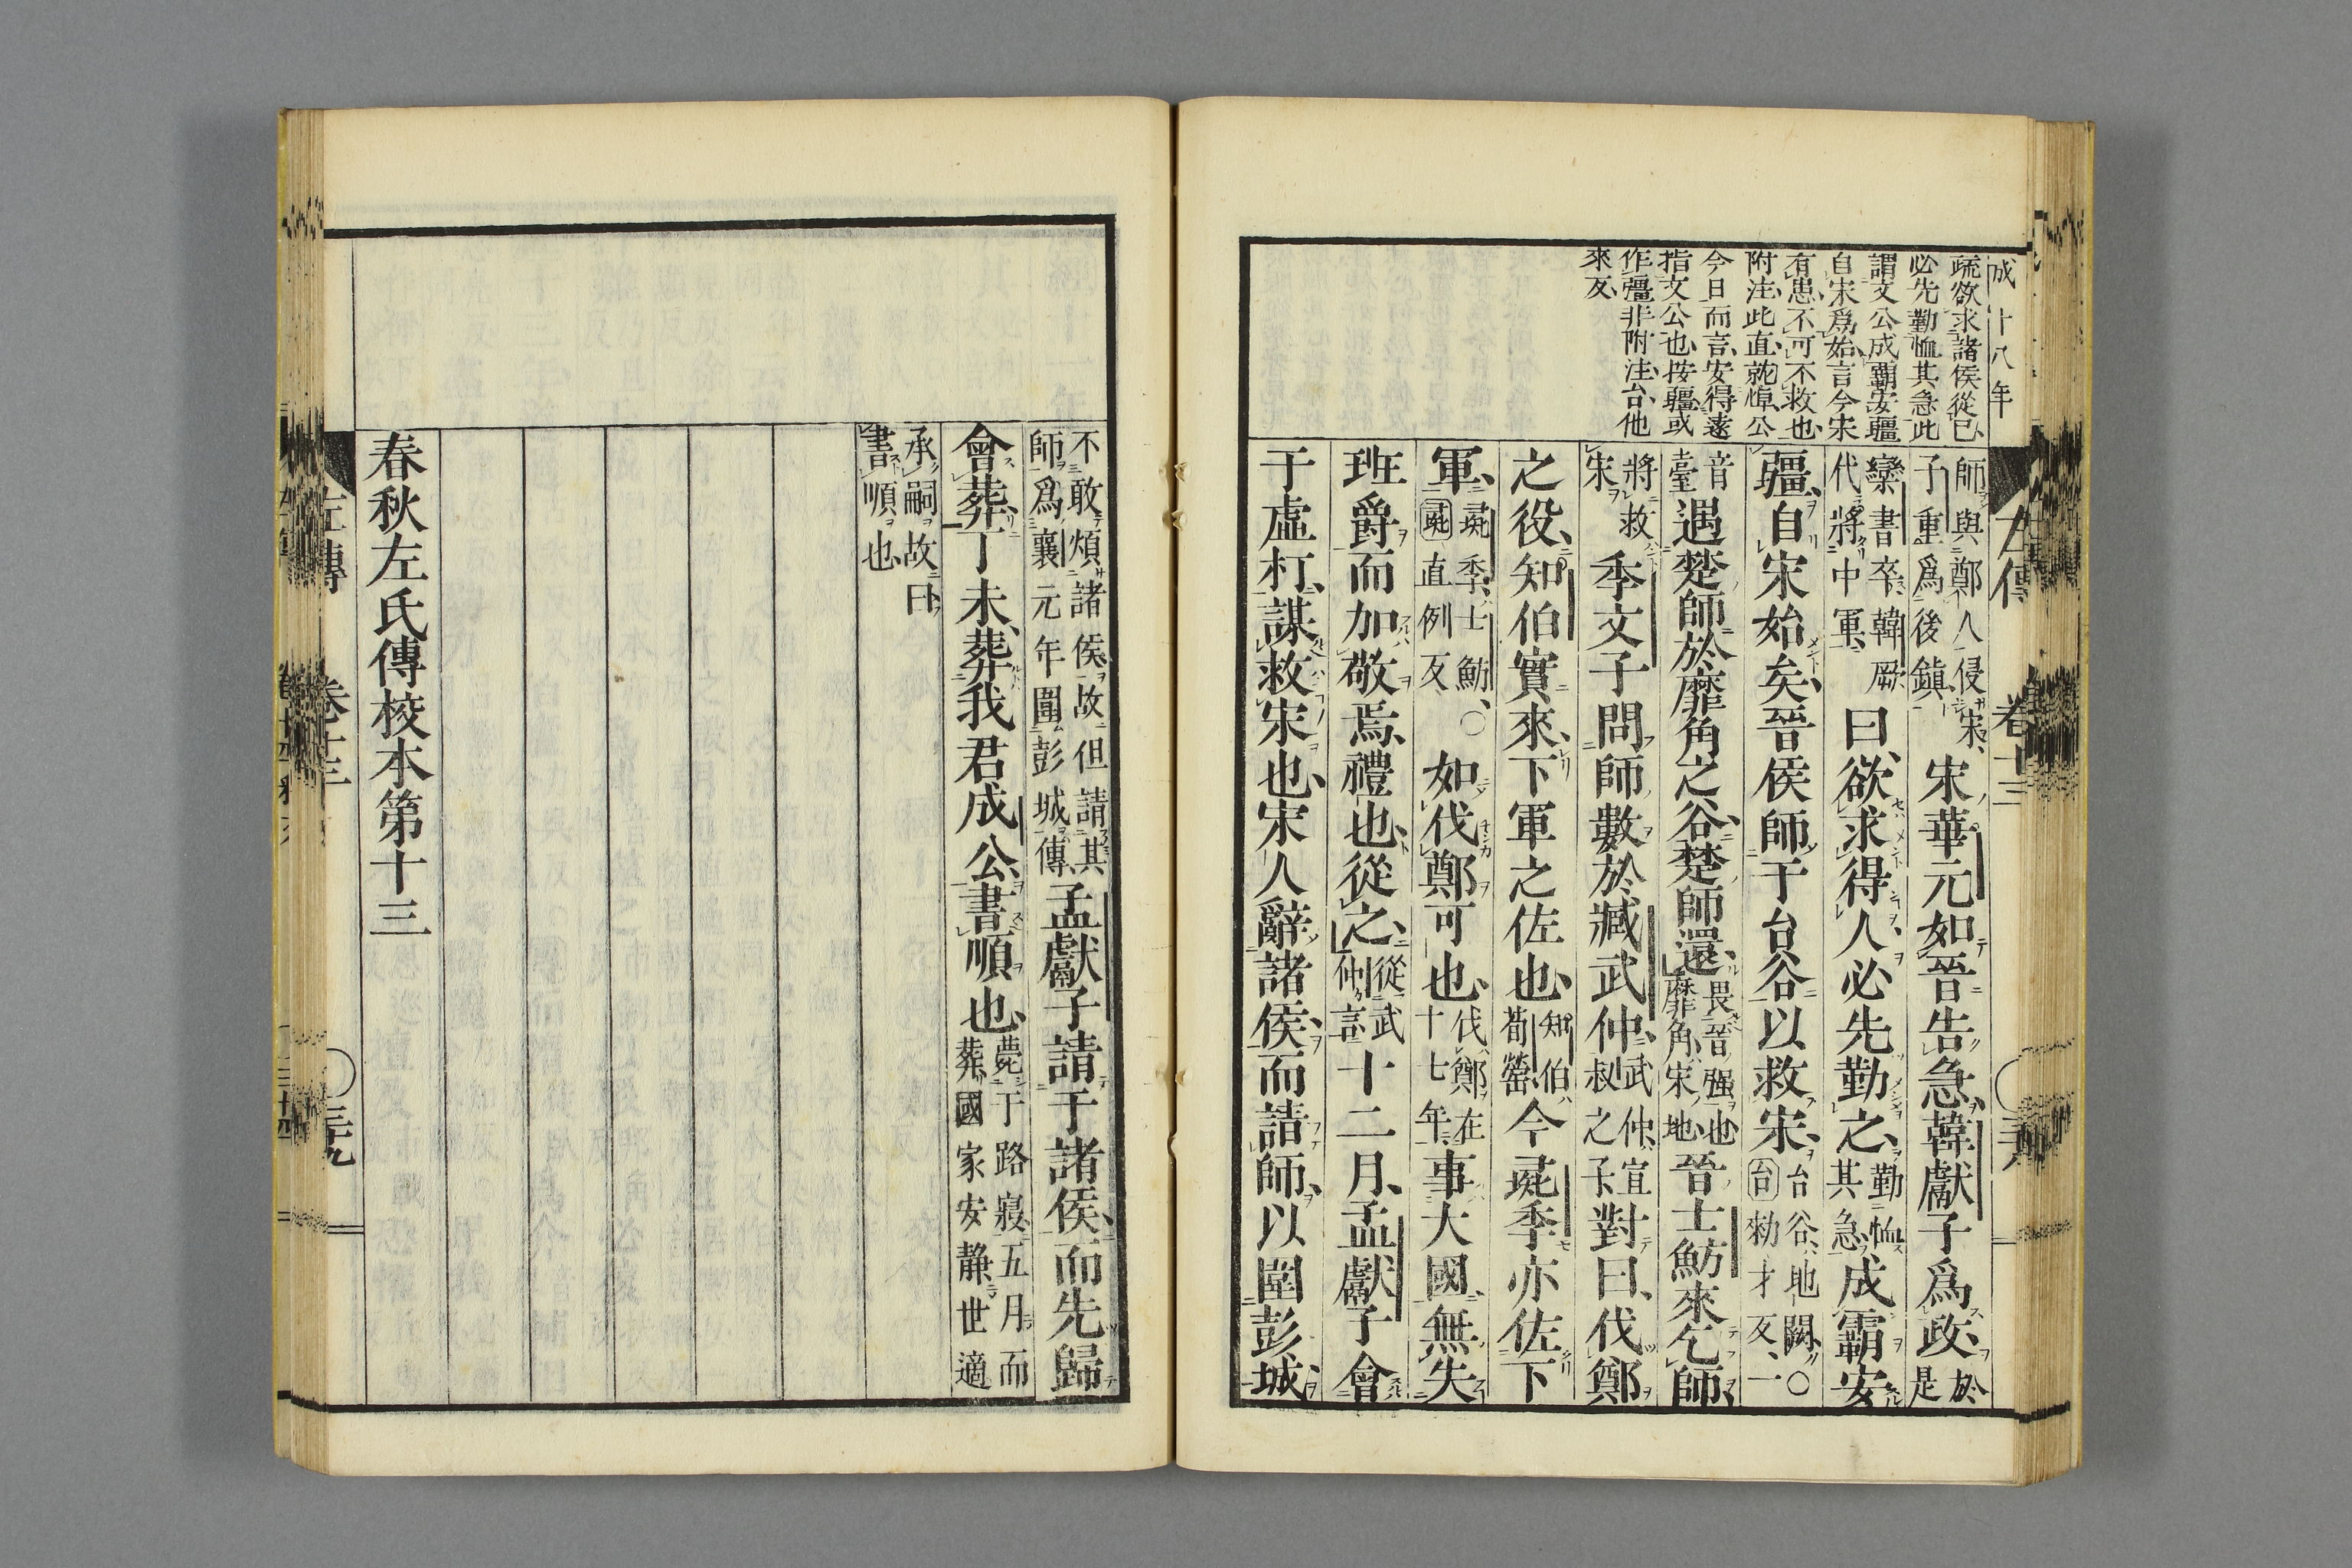 成十八年
疏欲求諸侯從已
必先勤恤其急此
謂文公成霸安疆
自宋爲始言今宋
有患不可不救也
附注此直就悼公
今日而言安得遠
指文公也按疆或
作彊非附注台他
來反
師與鄭人侵宋
子重爲後鎮
宋華元如晉告急韓獻子爲政
於
是
欒書卒韓厥
代將中軍
曰欲求得人必先勤之
勤恤
其急
成霸安
疆自宋始矣晉侯師于台谷以救宋
台谷地闕○
台勑才反一
音
臺
遇楚師於靡角之谷楚師還
畏晉强也
靡角宋地
晉士魴來乞師
將救
宋
季文子問師數於臧武仲
武仲宣
叔之子
對曰伐鄭
之役知伯實來下軍之佐也
知伯
荀罃
今彘季亦佐下
軍
彘季士魴○
彘直例反
如伐鄭可也
伐鄭在
十七年
事大國無失
班爵而加敬焉禮也從之
從武
仲言
十二月孟獻子會
于虛朾謀救宋也宋人辭諸侯而請師以圍彭城
左傳 卷十三
不敢煩諸侯故但請其
師爲襄元年圍彭城傳
孟獻子請于諸侯而先歸
會葬丁未葬我君成公書順也
薨于路寢五月而
葬國家安静世適
承嗣故曰
書順也
春秋左氏傳校本第十三
左傳 卷十三 三十九